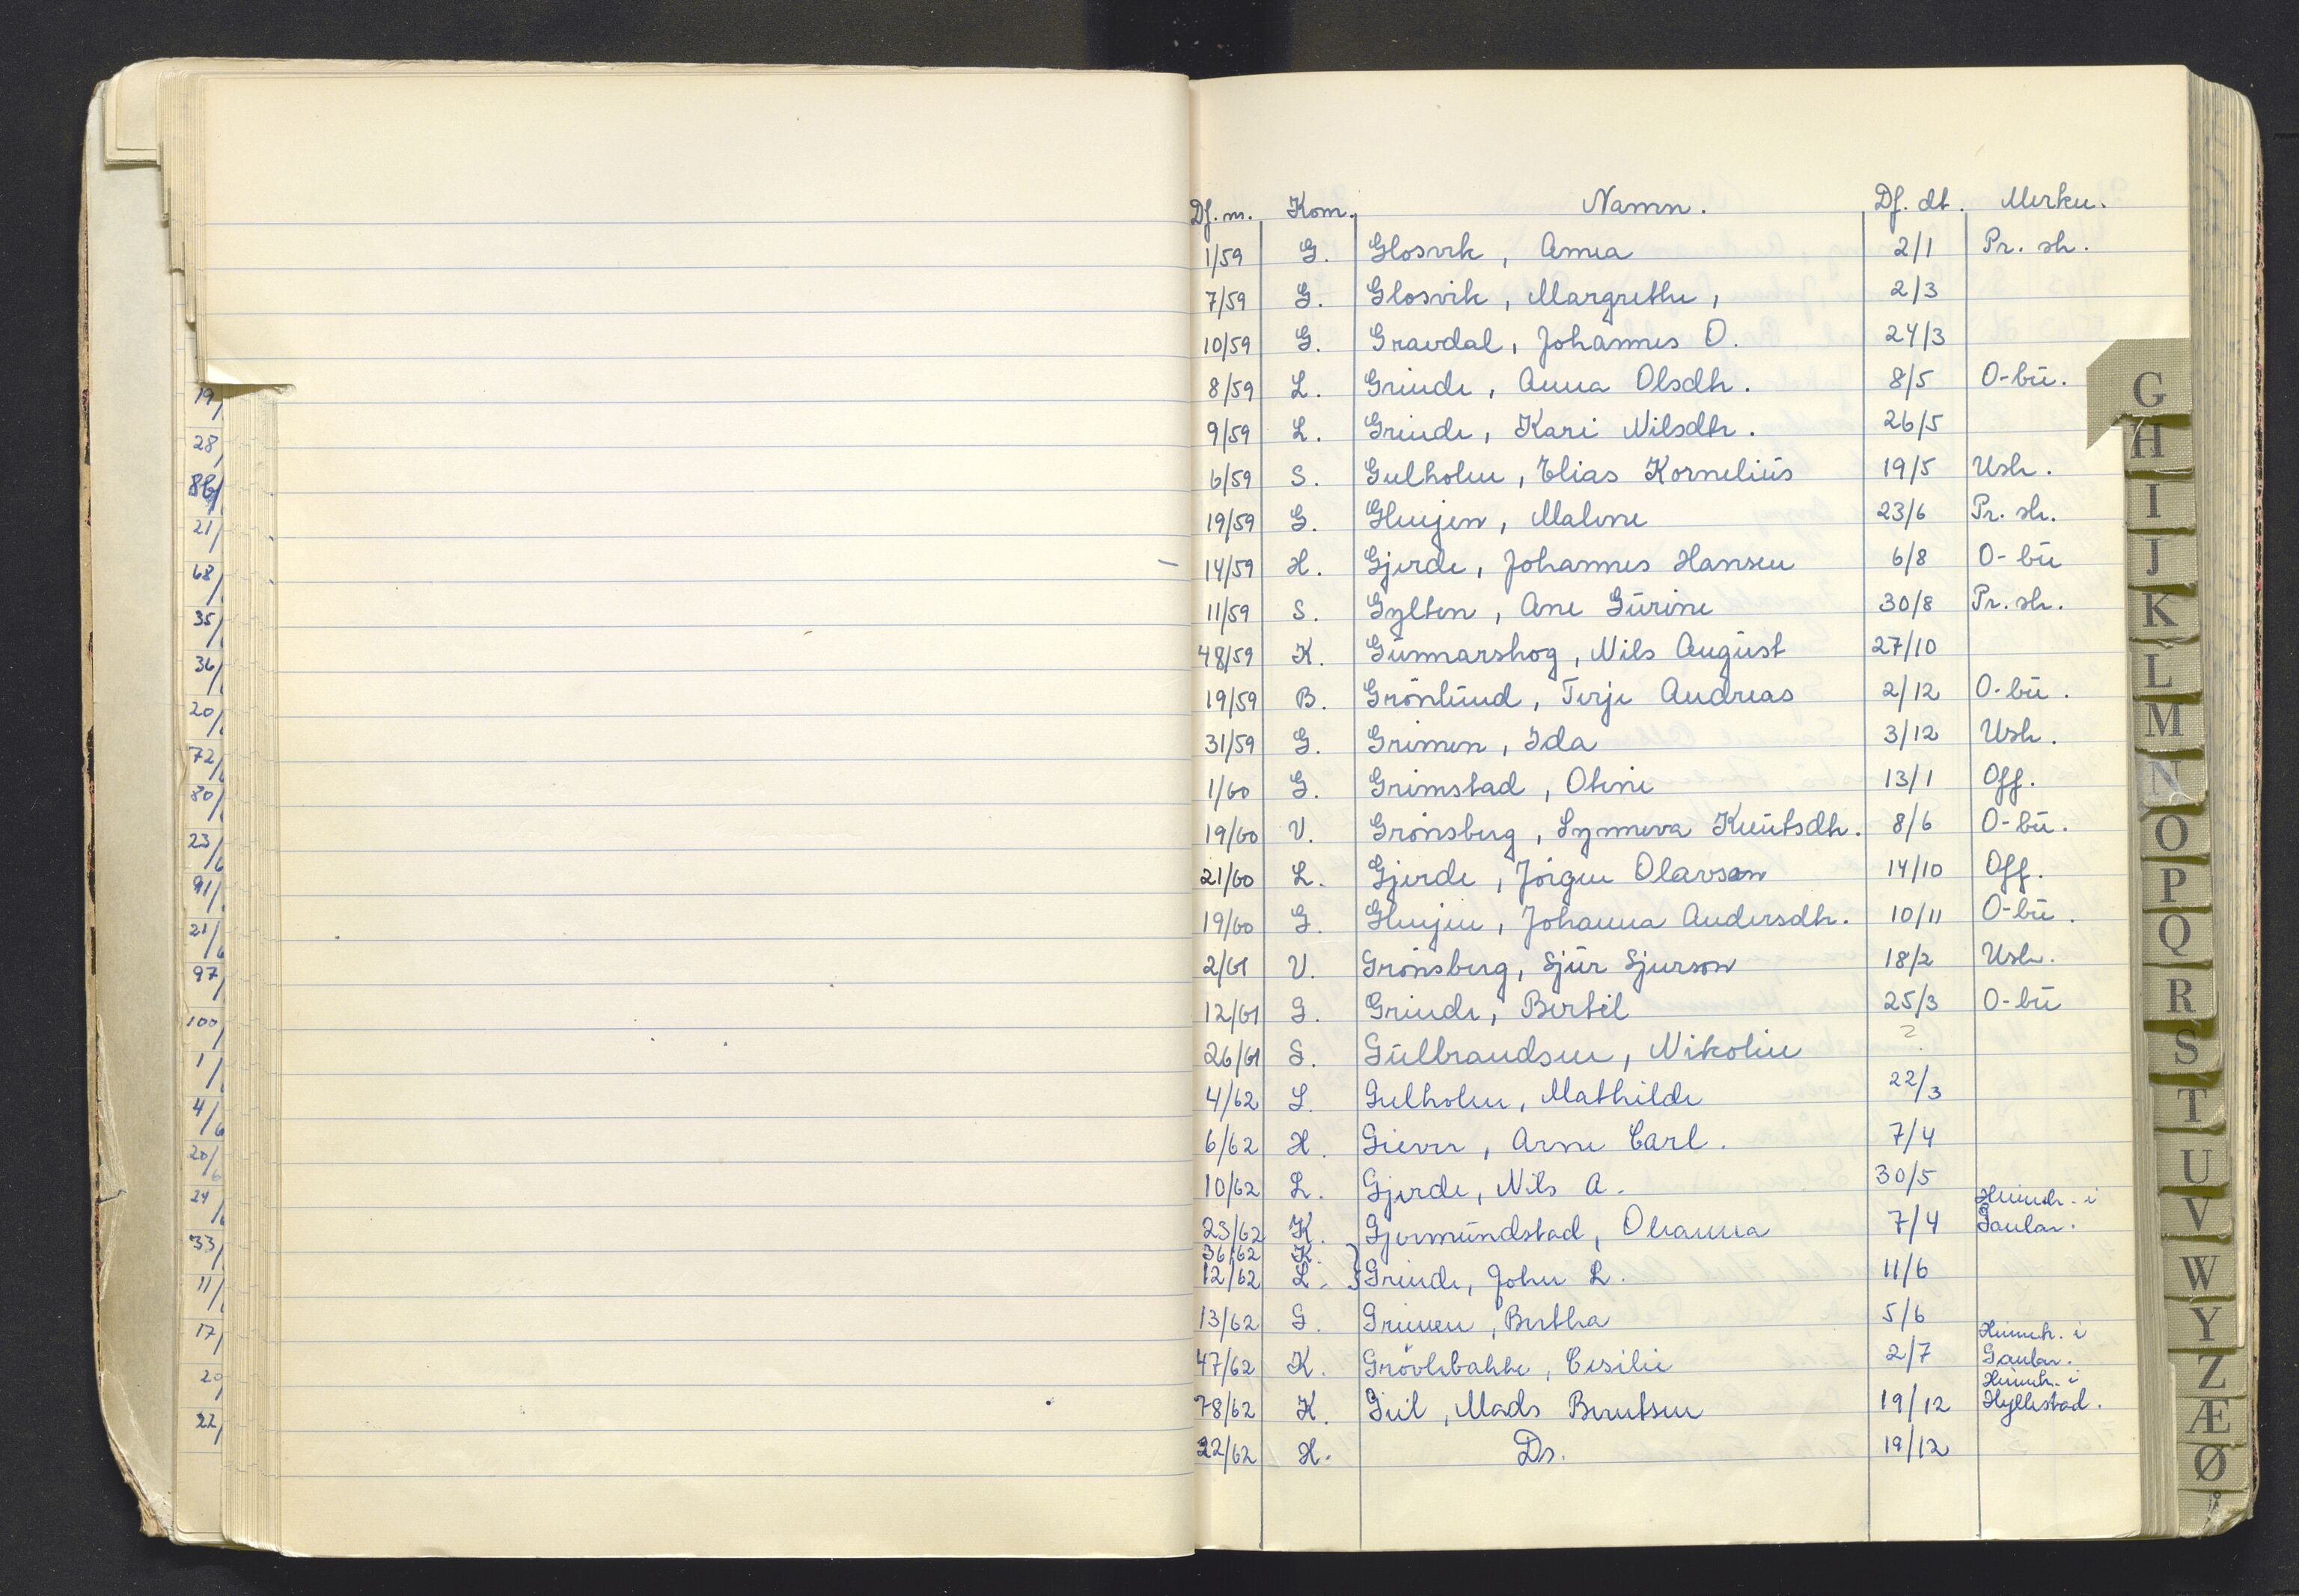 Df. nr. Kom. Namn. Df. dt. Merkn.
1/59 G. Glosvik, Anna 2/1 Pr. sk.
7/59 G. Glosvik, Margrethe, 2/3
10/59 G. Gravdal, Johannes O. 24/3
8/59 L. Grinde, Anna Olsdtr. 8/5 O-bū.
9/59 L. Grinde, Kari Nilsdtr. 26/5
6/59 S. Gulholm, Elias Kornelius 19/5 Usk.
19/59 G. Glenjen, Malene 23/6 Pr. sk.
14/59 H. Gjerde, Johannes Hansen 6/8 O-bū
11/59 S. Gylten, Ane Gurine 30/8 Pr. sk.
48/59 K. Gunnarskog, Nils August 27/10
19/59 B. Grönlund, Terje Andreas 2/12 O-bū.
31/59 G. Grimen, Ida 3/12 Usk.
1/60 G. Grimstad, Oline 13/1 Off.
19/60 V. Grönsberg, Synneva Knutsdtr. 8/6 O-bū.
21/60 L. Gjerde, Jörgen Olavson 14/10 Off.
19/60 G. Glenjen, Johanna Andersdtr. 10/11 O-bū.
2/61 V. Grönsberg, Sjur Sjurson 18/2 Usk.
12/61 G. Grinde, Bertil 25/3 O-bū
26/61 S. Gulbrandsen, Nikolin ?
4/62 S. Gulholm, Mathilde 22/3
6/62 H. Giever, Arne Carl. 7/4
10/62 L. Gjerde, Nils A. 30/5
Heimeh. i
23/62 K. Gjermundstad, Oleanna 7/4 Gaular.
36/62 K.
12/62 L. } Grinde, John L. 11/6
13/62 G. Grimen, Bertha 5/6
Heimeh. i
47/62 K. Grövlebakke, Cesilie 2/7 Gaular.
Heimeh. i
78/62 K. Giil, Mads Berntsen 19/12 Hyllestad.
22/62 H. Ds. 19/12
19/
28/
86/
21/
68/
35/
36/
20/
72/
80/
23/6
91/
21/6
97/
100/
1/
4/6
20/6
24/6
33/
11/
17/
20/
22/
G
H
I
J
K
L
M
N
O
P
Q
R
S
T
U
V
W
Y
Z
Æ
Ø
Å